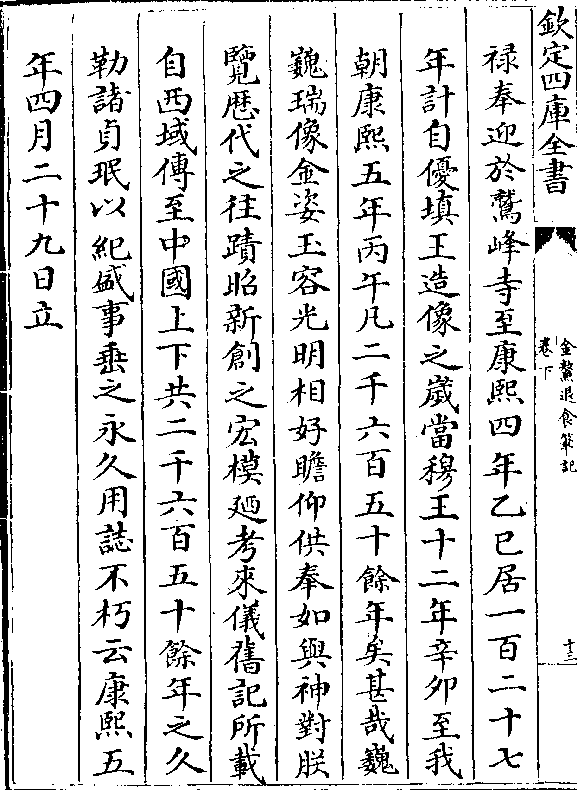 欽定四庫全書
金鰲退食筆記
卷下
十三
禄奉迎於鷲峰寺至康熙四年乙巳居一百二十七
年計自優填王造像之嵗當穆王十二年辛卯至我
朝康熙五年丙午凡二千六百五十餘年矣甚哉巍
巍瑞像金姿玉容光明相好瞻仰供奉如與神對朕
覽歴代之往蹟昭新創之宏模廼考來儀舊記所載
自西域傳至中國上下共二千六百五十餘年之久
勒諸貞珉以紀盛事垂之永久用誌不朽云康熙五
年四月二十九日立